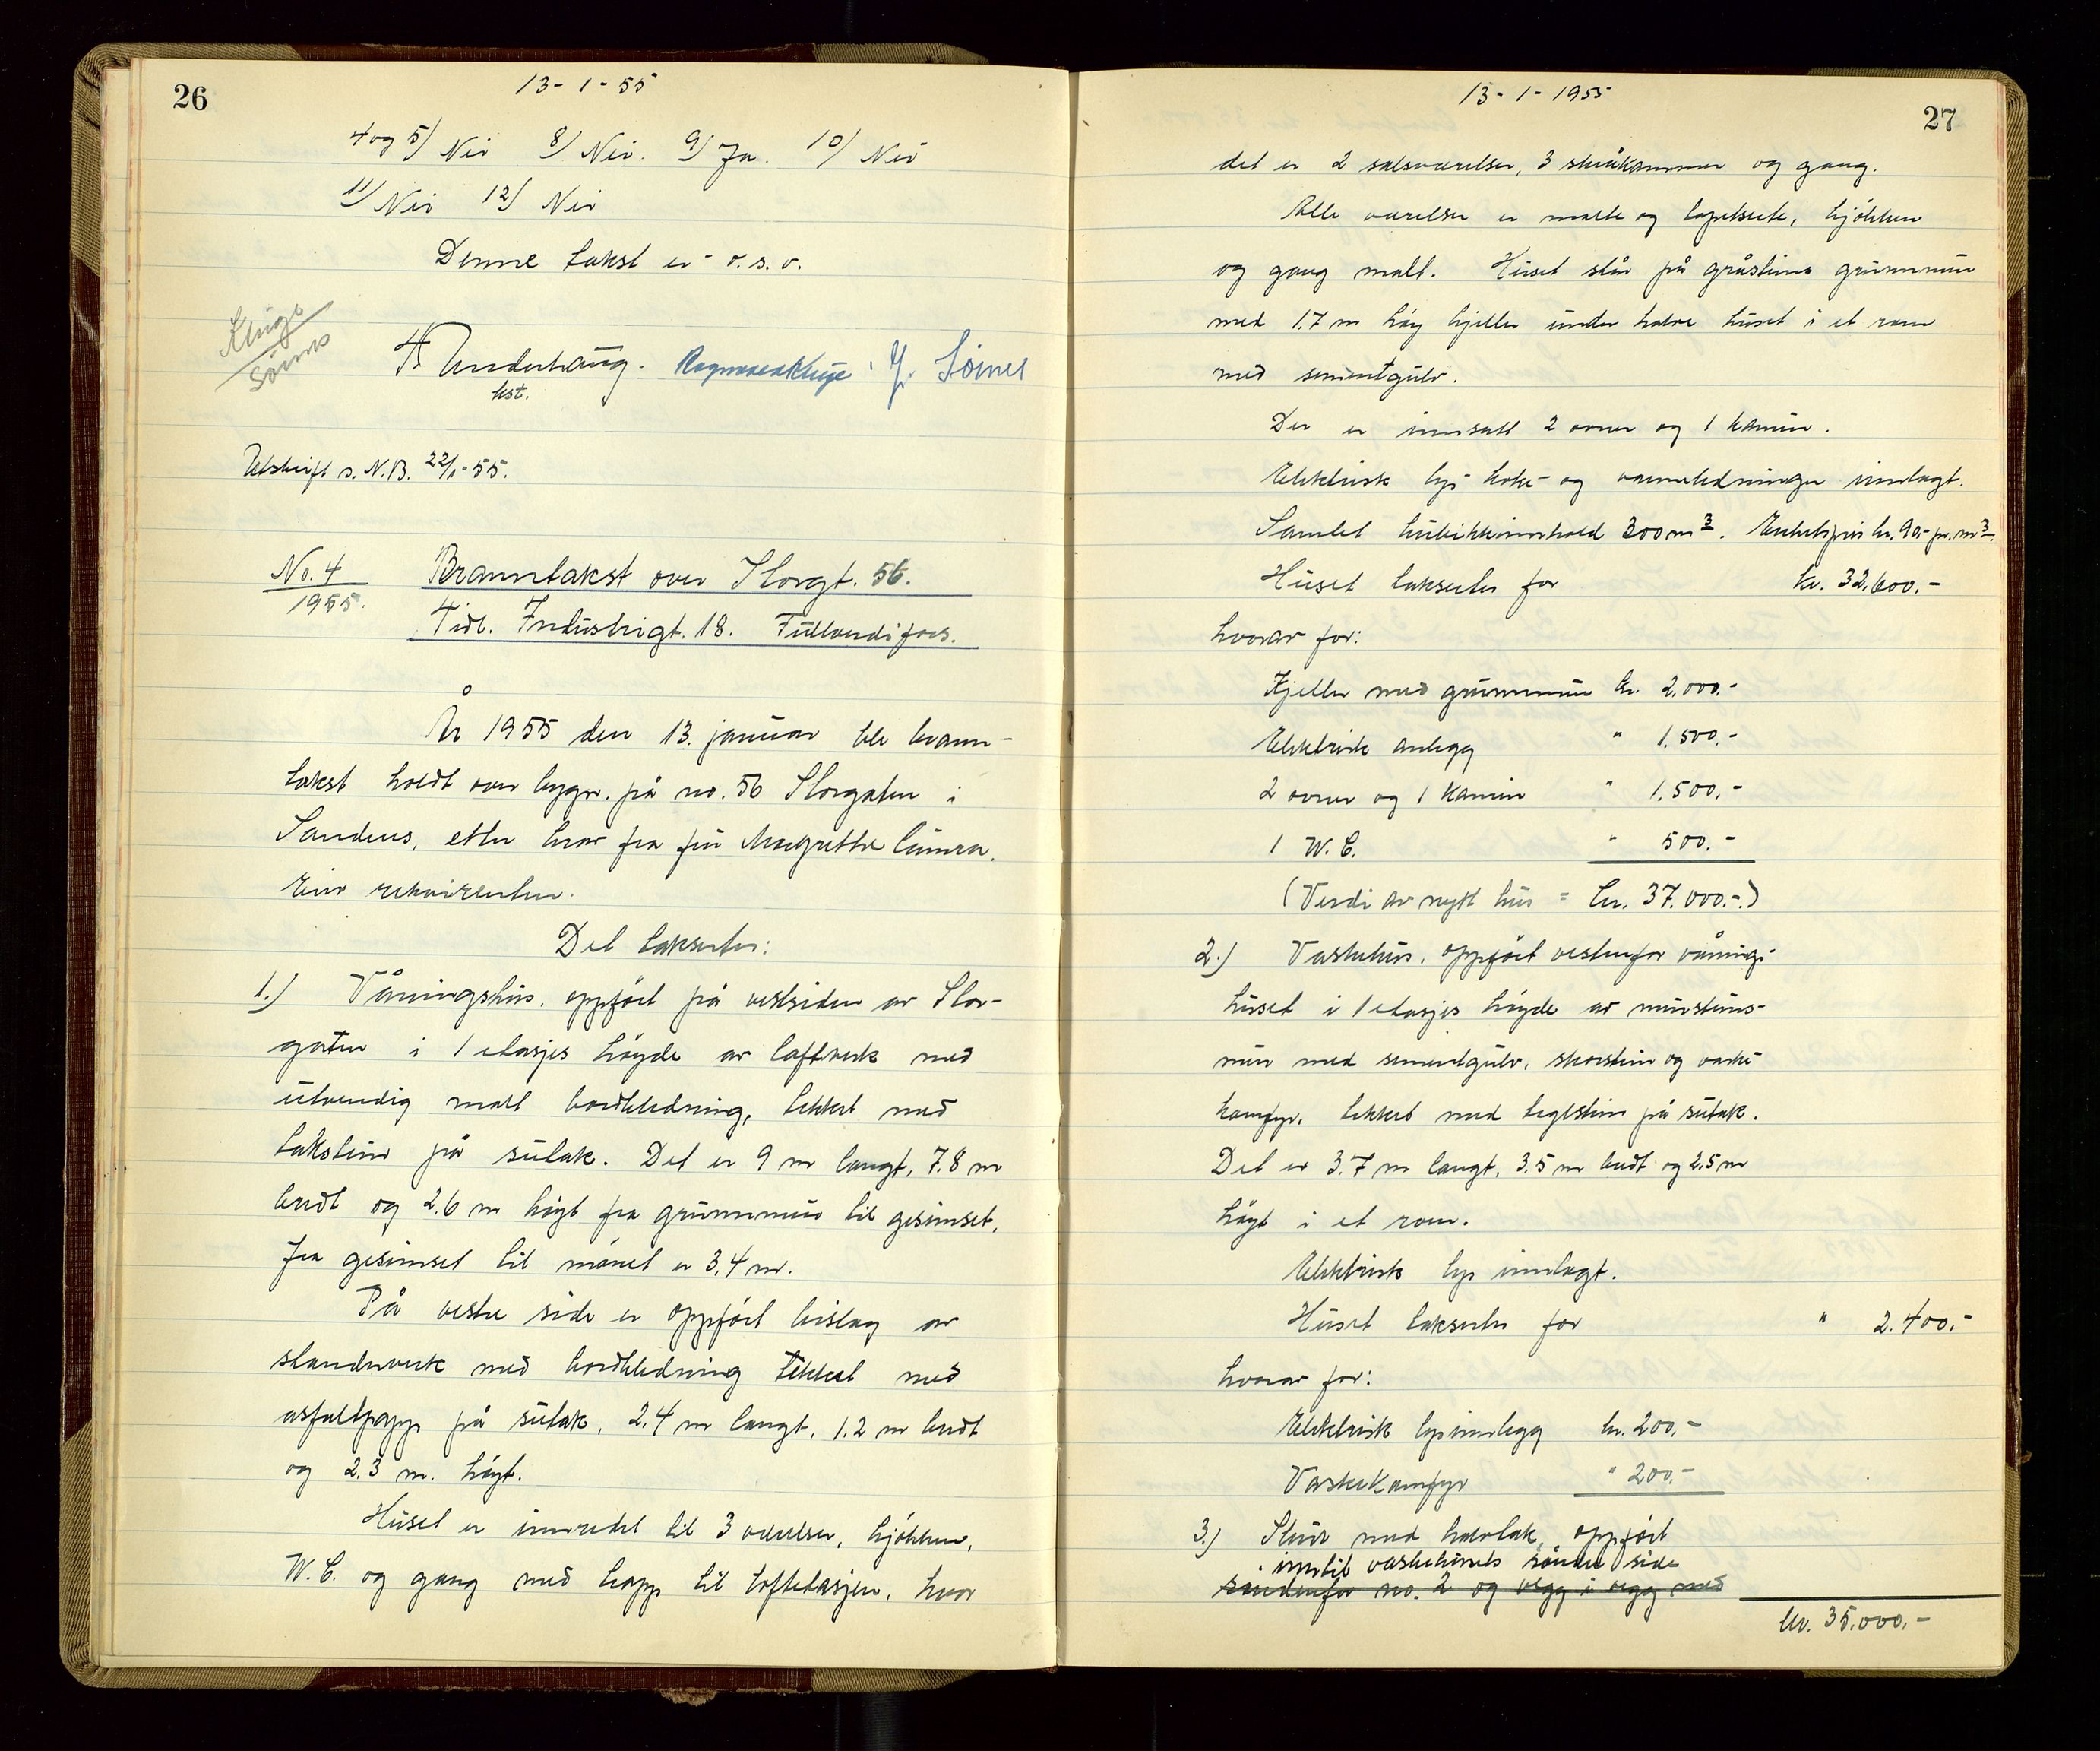 26
13-1-55
4 og 5/ Nei 8/ Nei. 9/ Ja. 10/ Nei
11/ Nei 12/ Nei
Denne takst er - o.s.v.
Kluge
Sørnes
Underhaug. Ragnvald Kluge. J. Sørnes
kst.
Utskrift s. N.B. 22/1-55.
No. 4
1955.
Branntakst over Storgt. 56.
Tidl. Industrigt. 18. Fullverdifors.
År 1955 den 13. januar ble brann-
takst holdt over bygn. på no. 56 Storgaten i
Sandnes, etter krav fra fru Margrethe
Eier rekvirenten.
Det takseres:
1.) Våningshus, oppført på vestsiden av Stor-
gaten i 1 etasjes høyde av lafteverk med
utvendig malt bordkledning, tekket med
takstein på sutak. Det er 9 m langt, 7.8 m
bredt og 2.6 m høyt fra grunnmur til gesimset,
fra gesimset til mønet er 3,4 m.
På vestre side er oppført bislag av
stenderverk med bordkledning tekket med
asfaltpapp på sutak, 2.4 m langt, 1.2 m bredt
og 2.3 m. høyt.
Huset er innredet til 3 værelser, kjøkken,
W.C. og gang med trapp til loftetasjen, hvor
13-1-1955
27
det er 2 salsværelser, 3 skråkammer og gang.
Alle værelser er malte og tapetserte, kjøkken
og gang malt. Huset står på gråsteins grunnmur
med 1.7 m høy kjeller under halve huset i et rom
med sementgulv.
Der er innsatt 2 ovner og 1 kamin.
Elektrisk lys- koke- og varmeledninger innlagt.
Samlet kubikkinnhold 300 m3. Enhetspris kr. 90,- pr. m3.
Huset takseres for kr. 32.600.-
hvorav for:
Kjeller med grunnmur kr. 2.000.-
Elektrisk anlegg " 1.500.-
2 ovner og 1 kamin " 1.500.-
1 W.C. " 500.-
(Verdi av nytt hus = kr. 37.000.-.)
2.) Vaskehus, oppført vestenfor vånings-
huset i 1 etasjes høyde av murstens-
mur med sementgulv, skorstein og vaske-
komfyr, tekket med teglstein på sutak.
Det er 3.7 m langt, 3.5 m bredt og 2.5 m
høyt i et rom.
Elektrisk lys innlagt.
Huset takseres for " 2.400.-
hvorav for:
Elektrisk lysinnlegg kr. 200.-
Vaskekomfyr " 200.-
3.) Skur med halvtak, oppført
inntil vaskehusets søndre side
søndenfor no. 2 og vegg i vegg med
kr. 35.000.-